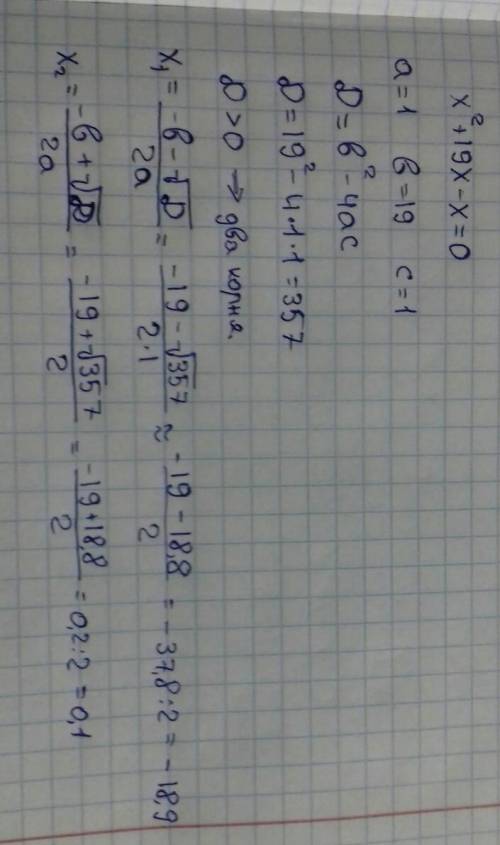 x²+19x-x=0
a=1 в=19 c=1
D=в²-4ac
D=19²-4·1·1=357
D>0 → два корня.
x₁ = (-в-√D)/2a = (-19-√357)/2·1 ≈ (-19-18,8)/2 = -37,8:2 = -18,9
x₂ = (-в+√D)/2a = (-19+√357)/2 = (-19+18,8)/2 = 0,2:2 = 0,1